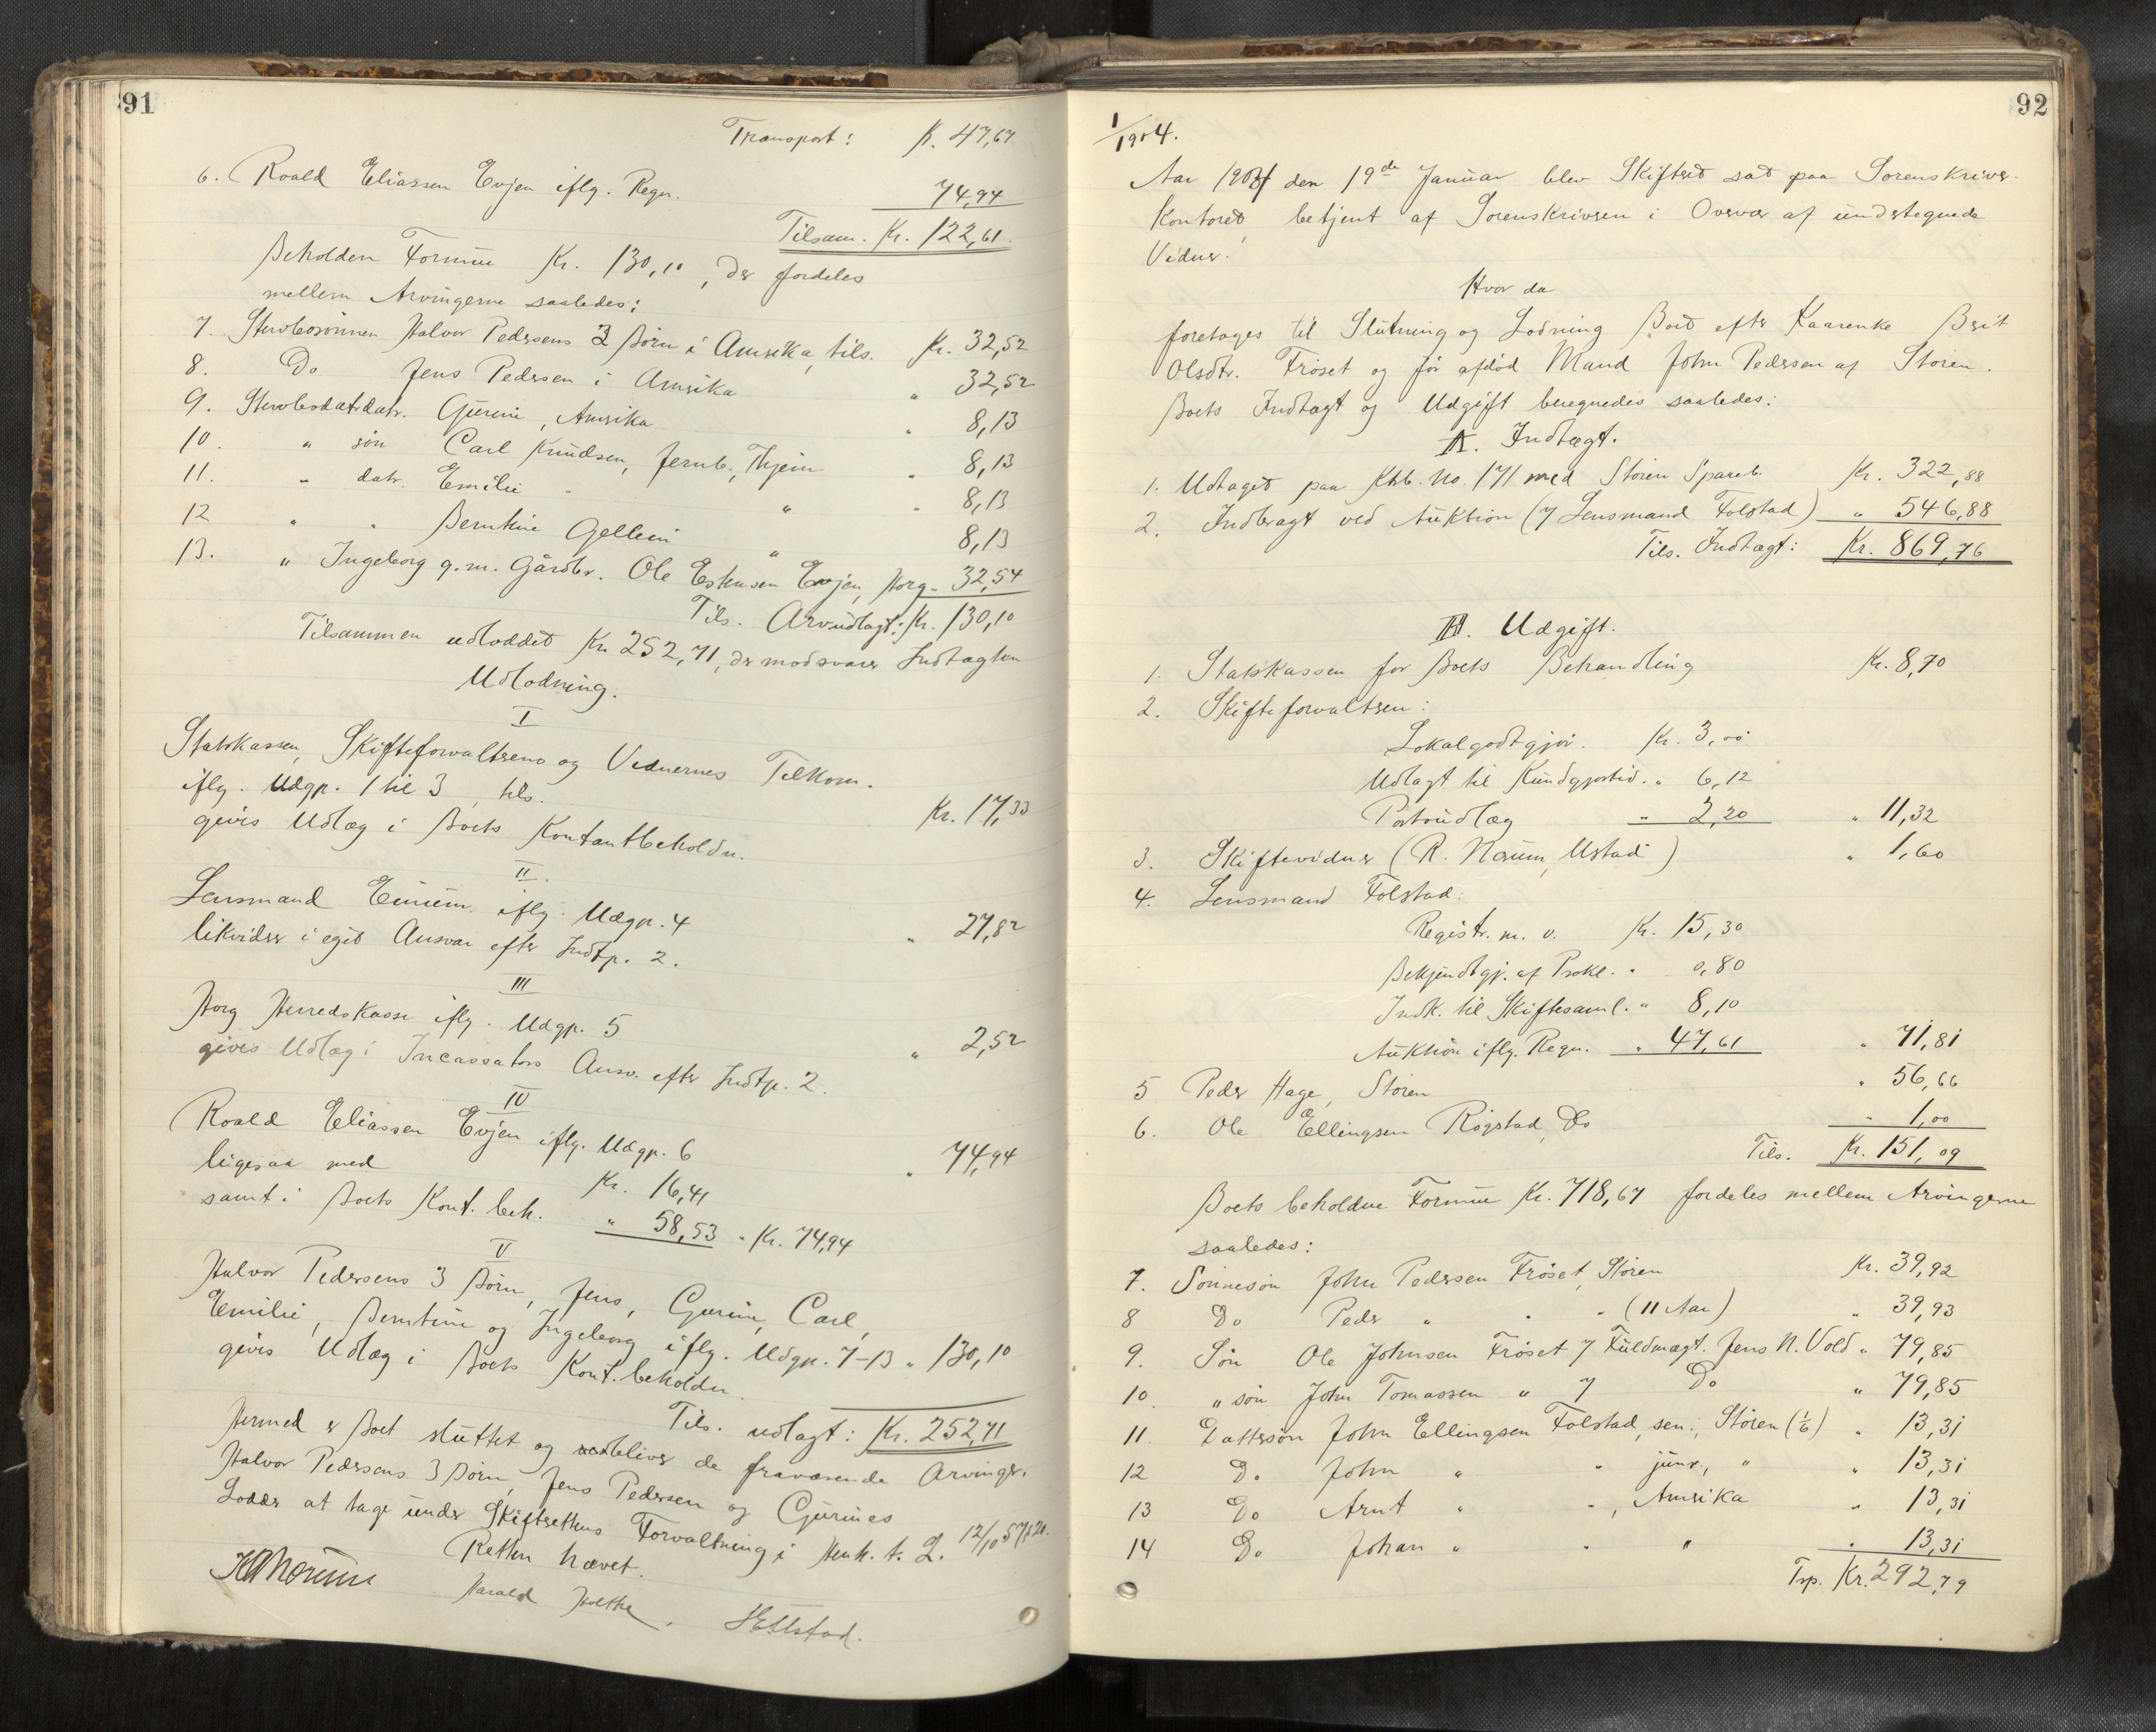 91
Transport: K. 47,67
6. Roald Eliassen Evjen iflg. Regn. 74,94
Tilsam. Kr. 122,61.
Beholden Formue Kr. 130,10, der fordeles
mellem Arvingerne saaledes:
7. Stervbosønnen Halvor Pedersens 3 Børn i Amerika, tils. Kr. 32,52
8. Do Jens Pedersen i Amerika " 32,52
9. Stervbodatrdatr. Gurine, Amerika " 8,13
10. " søn Carl Knudsen, Jernb., Thjem " 8,13
11. " datr. Emilie " " 8,13
12 " " Berntine Gellein " 8,13
13. " Ingeborg g. m. Gårdbr. Ole Estensen Evjen, Horg - 32,54
Tils. Arvudlagt: Kr. 130,10
Tilsammen udloddet Kr 252,71, der modsvarer Indtægten
Udlodning.
I
Statskassen, Skifteforvalterens og Vidnernes Tilkom.
iflg. Udgp. 1 til 3, tils. Kr. 17,33
givis Udlæg i Boets Kontantbeholdn.
II.
Lensmand iflg. Udgp. 4 " 27,82
likvider i eget Ansvar efter Indtp. 2.
III
Horg Herredskasse iflg. Udgp. 5 " 2,52
givis Udlæg i Incassators Ansv. efter Indtp. 2.
IV
Roald Eliassen Evjen iflg. Udgp. 6 " 74,94
ligesaa med Kr. 16,41
samt i Boets Kont. beh. " 58,53 = Kr. 74,94
V
Halvor Pedersens 3 Børn, Jens, Gurine, Carl,
Emilie, Berntine og Ingeborg iflg. Udgp. 7-13 " 130,10
givis Udlæg i Boets Kont. beholdn.
Tils. udlagt: Kr. 252,71
Hermed er Boet sluttet og bliver de fraværende Arvinger.
Halvor Pedersens 3 Børn, Jens Pedersen og Gurines
Lodder at tage under Skifterettens Forvaltning i
Retten hævet.
Harald
92
1/1904.
Aar 1904 den 19de Januar blev Skifteret sat paa Sorenskriver-
kontoret, betjent af Sorenskriveren i Overvær af undertegnede
Vidner.
Hvor da
foretoges til Slutning og Lodning Boet efter Kaarenke Berit
Olsdtr. Frøset og før afdød Mand John Pedersen af Støren.
Boets Indtægt og Udgift beregnedes saaledes:
A. Indtægt.
1. Udtaget paa Ktb. No. 171 med Støren Spareb. Kr. 322,88
2. Indbragt ved Auktion (v/ Lensmand Folstad) " 546,88
Tils. Indtægt: Kr. 869,76
B. Udgift.
1. Statskassen for Boets Behandling Kr. 8,70
2. Skifteforvalteren:
Lokalgodtgjør. Kr. 3,00
Udlagt til Kundgjørtid. " 6,12
Portoudlæg " 2,20 " 11,32
3. Skiftevidner (R. Norum, Ustad) " 1,60
4. Lensmand Folstad:
Registr. m. v. Kr. 15,30
Bekjendtgj. af Prokl. " 0,80
Indk. til Skiftesaml. " 8,10
Auktion iflg. Regn. " 47,61 " 71,81
5 Peder Hage, Støren " 56,66
6. Ole Ellingsen Rogstad, Do " 1,00
Tils. Kr. 151,09
Boets beholdne Formue Kr. 718,67 fordeles mellem Arvingerne
saaledes:
7. Sønnesøn John Pedersen Frøset, Støren Kr. 39,92
8 Do Peder " " " (11 Aar) " 39,93
9. Søn Ole Johnsen Frøset v/ Fuldmægt. Jens N. Vold " 79,85
10. " søn John Tomassen " v/ Do " 79,85
11. Dattersøn John Ellingsen Folstad, sen., Støren (1/6) " 13,31
12 Do John " " junr., " " 13,31
13 Do Arnt " ", Amerika " 13,31
14 Do Johan " " " " 13,31
Trp. Kr. 292,79